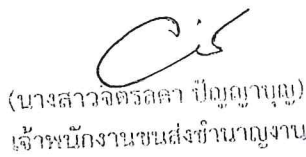 (นางสาวจิตรลดา ปัญญาบุญ)
เจ้าพนักงานขนส่งชำนาญงาน